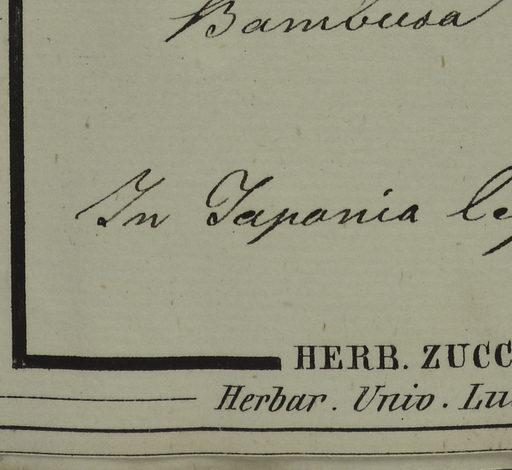 Bambusa
In Japonia
HERB. ZUCC
Herbar. Univ. Lu